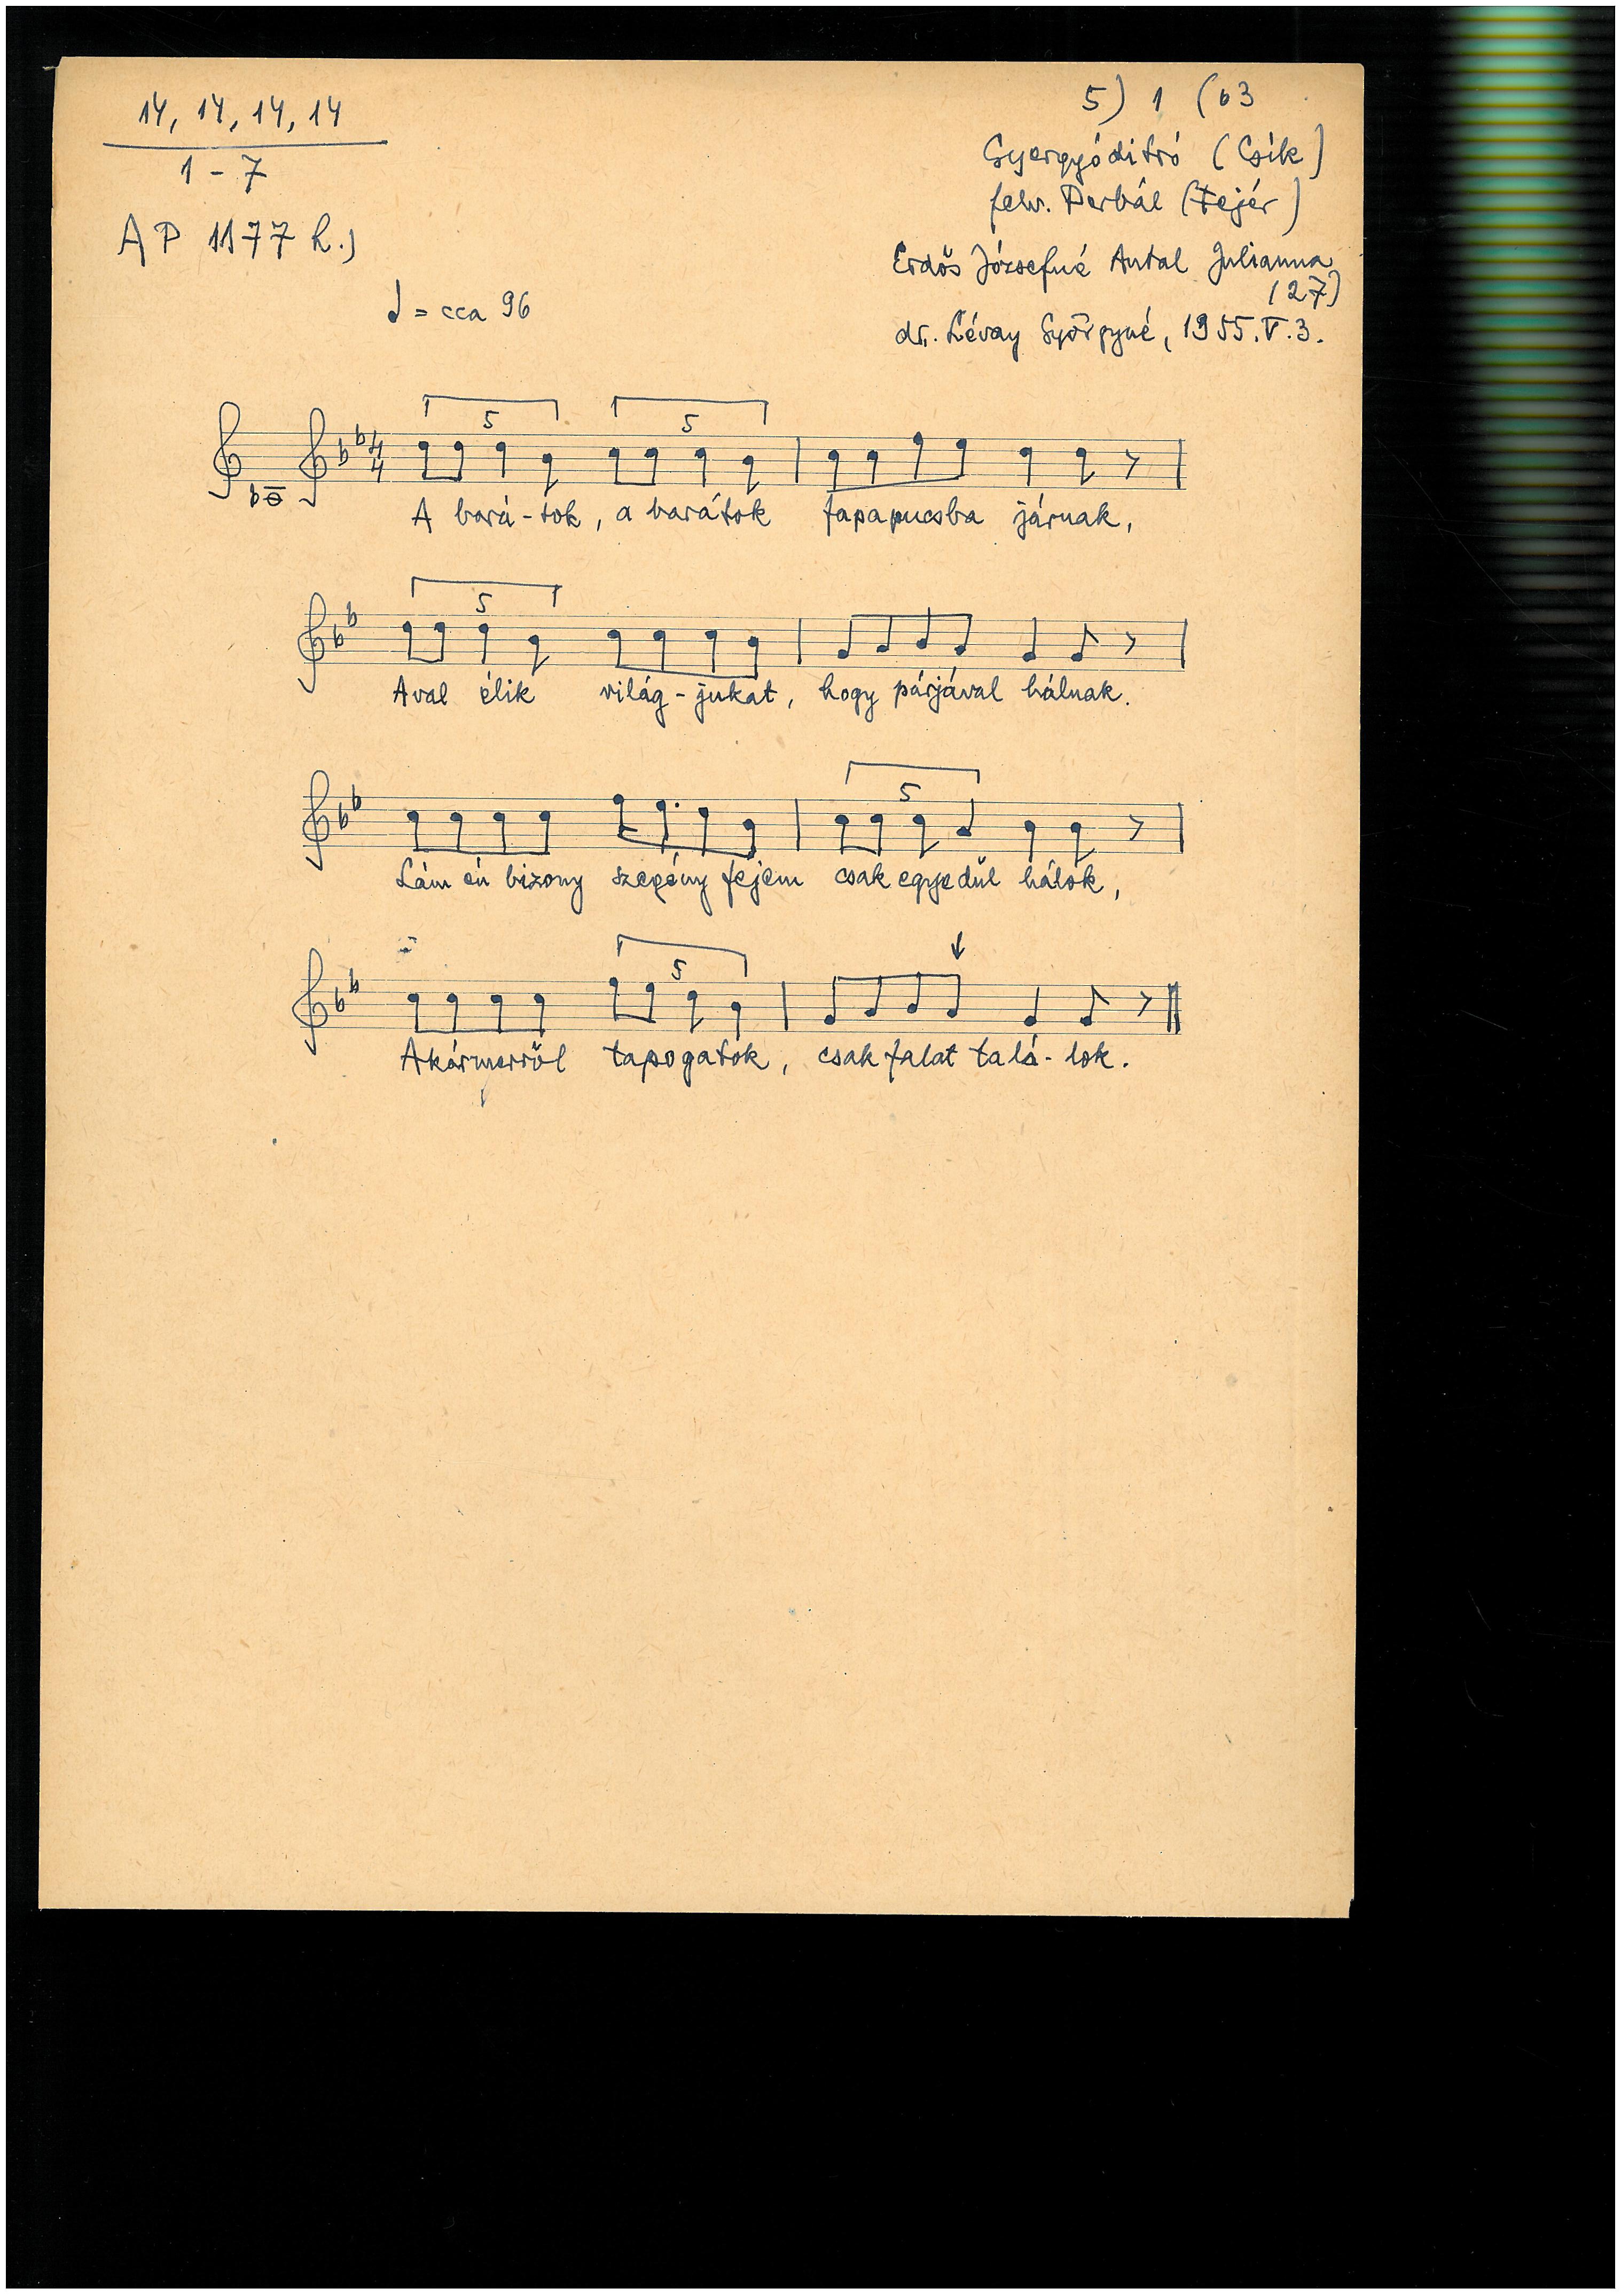 14, 14, 14, 14
1 - 7
AP 1177 h.)
5) 1 (b3
Gyergyóditró (Csík)
felv. Perbál (Fejér)
Erdős Józsefné Antal Julianna
(27)
dr. Lévay Györgyné, 1955. V. 3.
♩ = cca 96
5 5
A bará-tok, a barátok fapapucsba járnak,
5
Aval élik világ-jukat, hogy párjával hálnak.
5
Lám én bizony szegény fejem csak egyedül hálok,
5
Akármerről tapogatok, csak falat talá-lok.